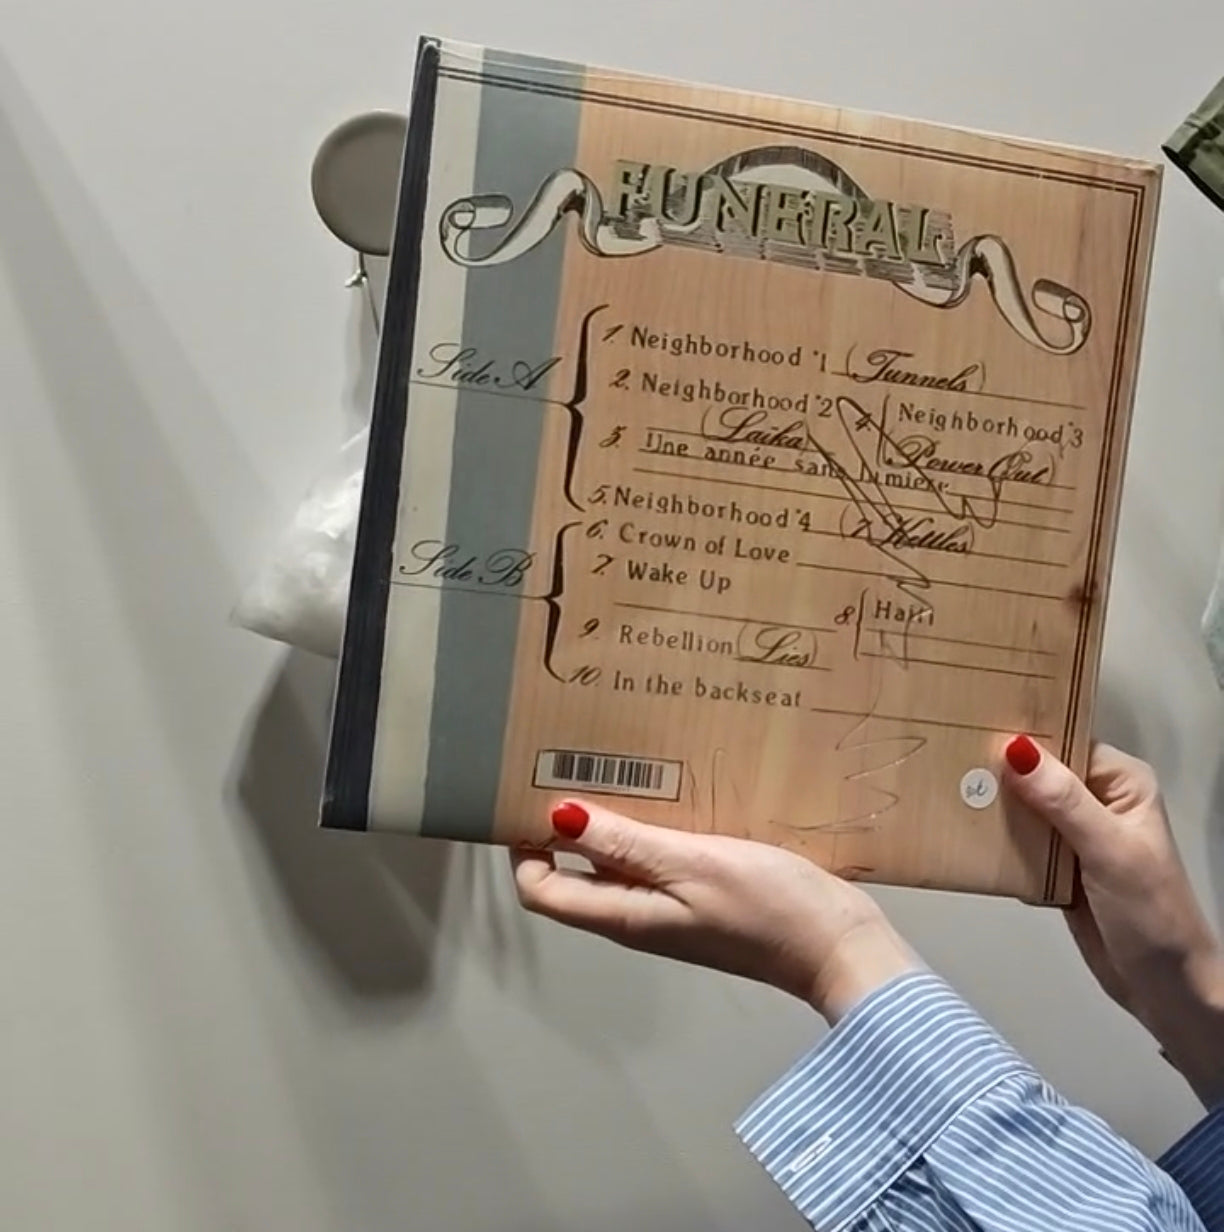 FUNERAL
Side A
1. Neighborhood #1 (Tunnels)
2. Neighborhood #2
(Laïka)
3. Une année sans lumiere
4. Neighborhood #3
(Power Out)
5. Neighborhood #4 (7 Kettles)
Side B
6. Crown of Love
7. Wake Up
8. Haiti
9. Rebellion (Lies)
10. In the backseat